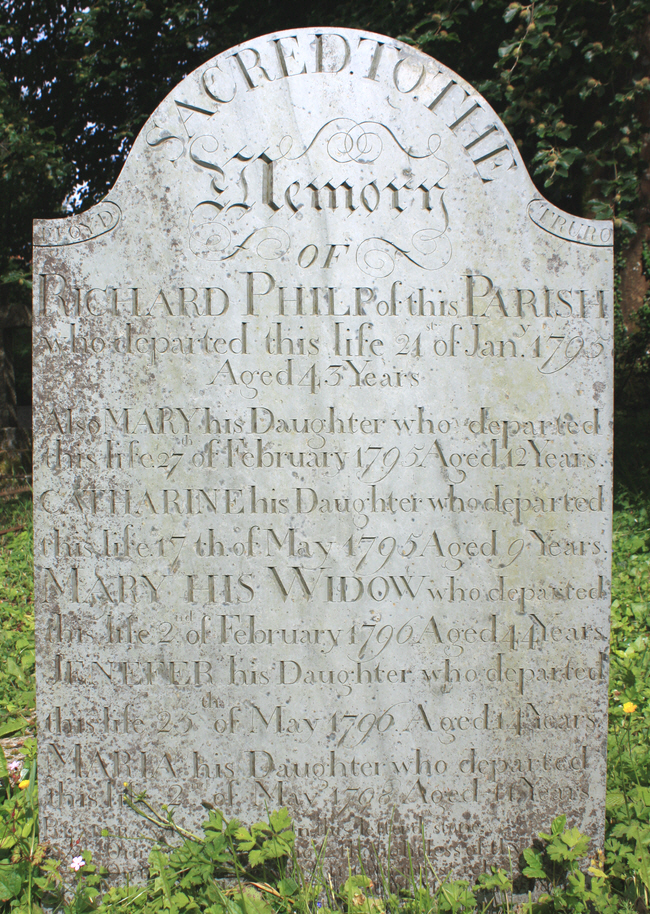 SACRED.TO.THE
Memory
FOY D
TRURO
OF
RICHARD PHILP of this PARISH
who departed this life 21st of Jany. 1795
Aged 43 Years
Also MARY his Daughter who departed
this life 27th of February 1795 Aged 12 Years.
CATHARINE his Daughter who departed
this life 17th of May 1795 Aged 9 Years.
MARY HIS WIDOW who departed
this life 2nd of February 1796 Aged 44 Years.
JENEFER his Daughter who departed
this life 25th of May 1796 Aged 14 Years.
MARIA his Daughter who departed
this life of May Aged Years